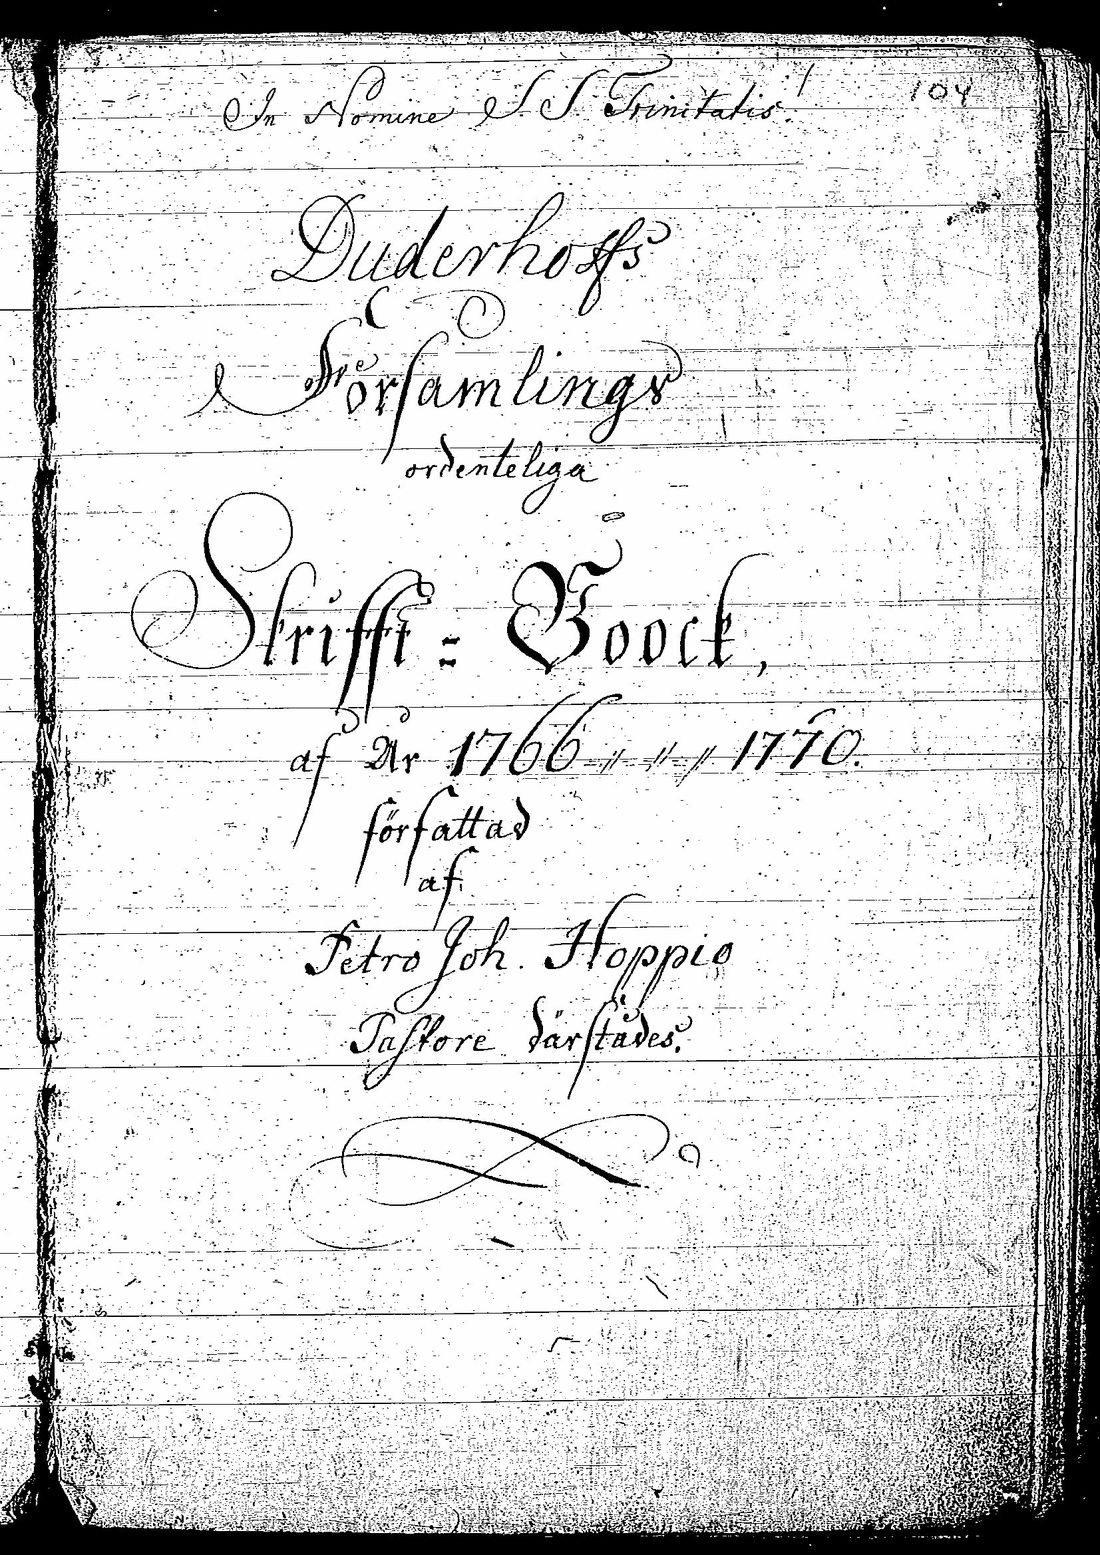 In Nomine S. S. Trinitatis!
104
Duderhoffs
Församlings
ordenteliga
Skrifft = Boock,
af År 1766 " " " 1770.
författad
af
Petro Joh. Hoppio
Pastore därstädes.